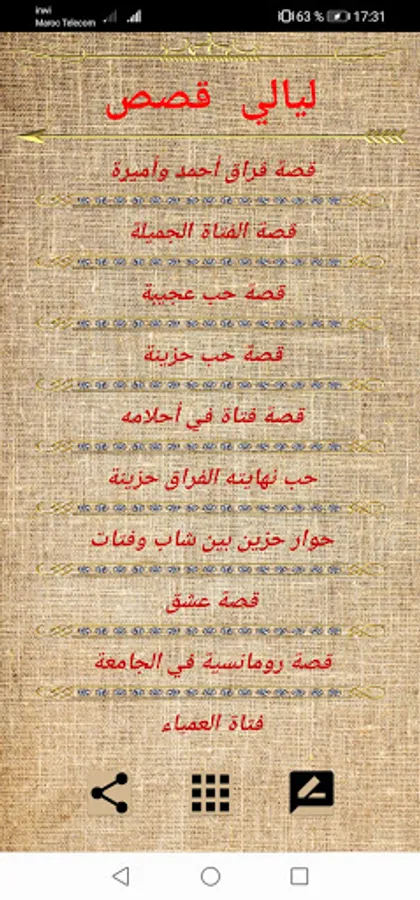 inwi
Maroc Telecom
63 %
17:31
ليالي قصص
قصة فراق أحمد وأميرة
قصة الفتاة الجميلة
قصة حب عجيبة
قصة حب حزينة
قصة فتاة في أحلامه
حب نهايته الفراق حزينة
حوار حزين بين شاب وفتات
قصة عشق
قصة رومانسية في الجامعة
فتاة العمياء